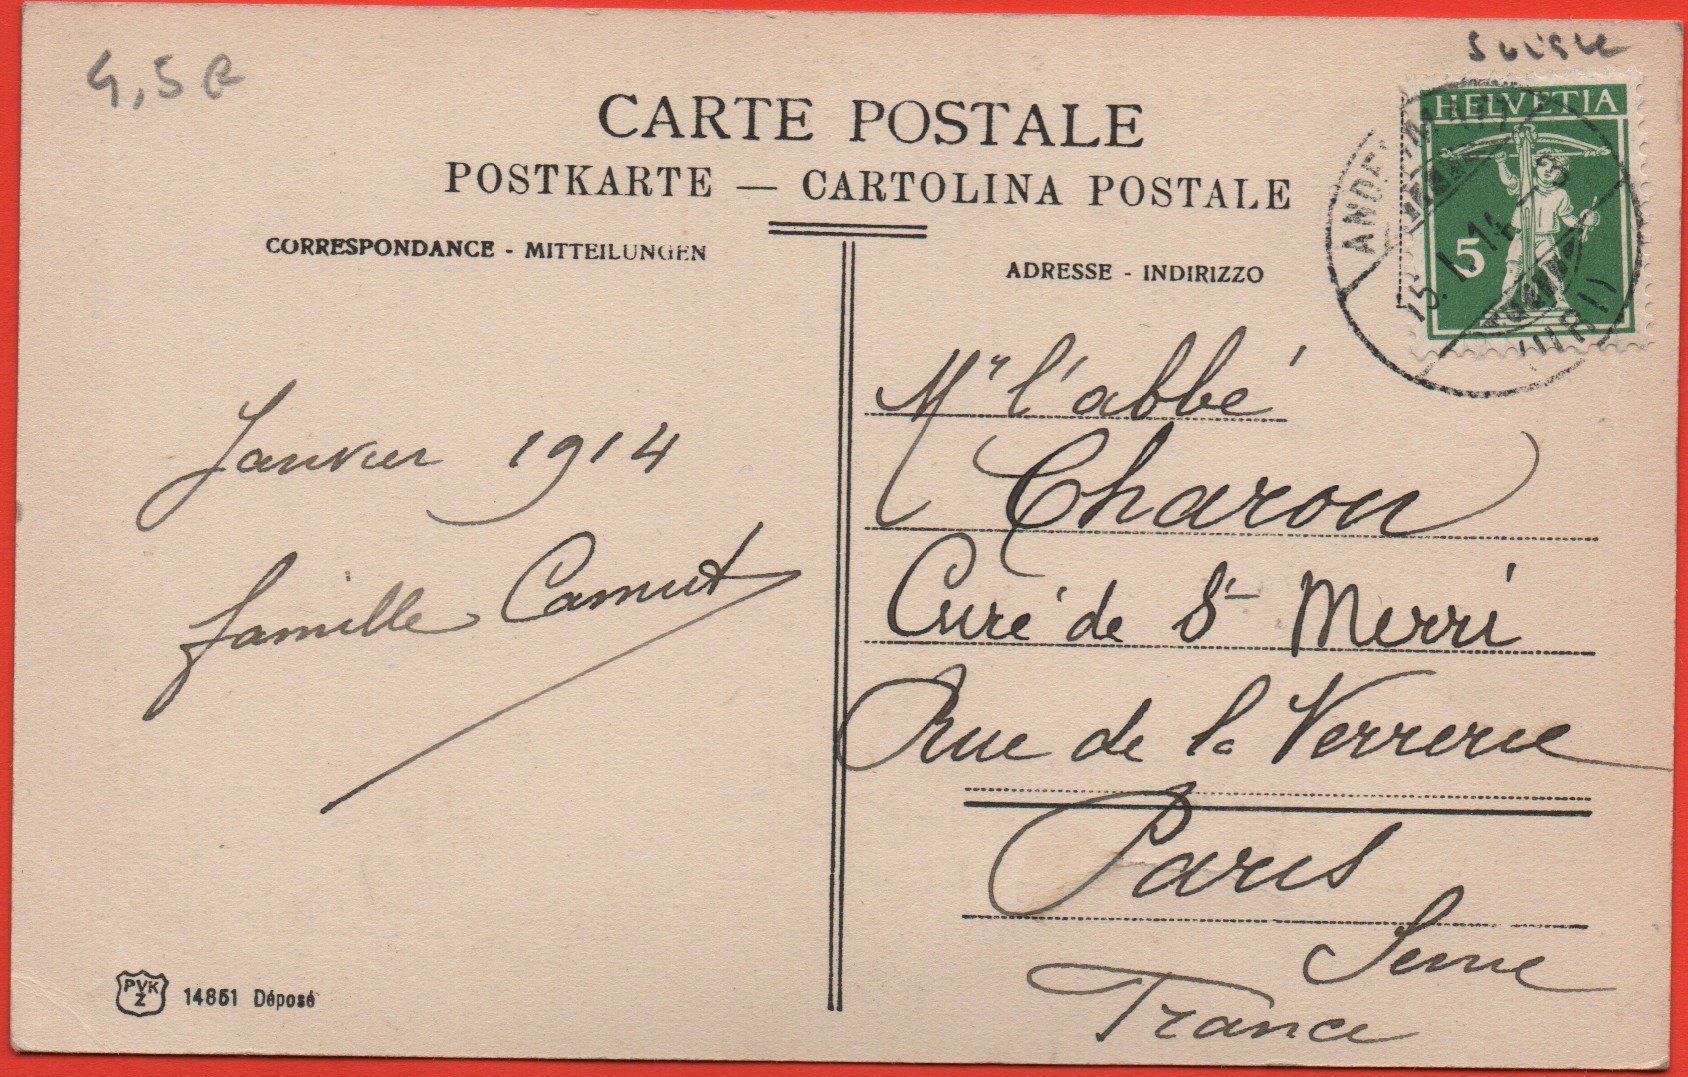 4,5 €
Suisse
CARTE POSTALE
POSTKARTE — CARTOLINA POSTALE
CORRESPONDANCE - MITTEILUNGEN
ADRESSE - INDIRIZZO
HELVETIA
5
ANDERMATT
15.I.14
(URI)
Janvier 1914
famille Camut
Mr l'abbé
Charon
Curé de St Merri
Rue de la Verrerie
Paris
Seine
France
PVK
Z
14851 Déposé